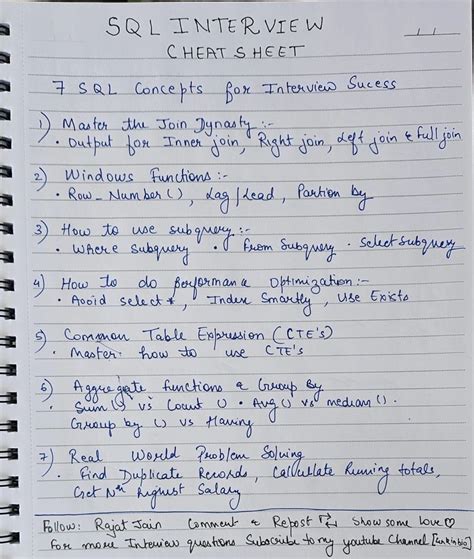 SQL INTERVIEW
CHEAT SHEET
7 SQL Concepts for Interview Sucess
1) Master the Join Dynasty :-
• Output for Inner join, Right join, Left join & Full join
2) Windows Functions :-
• Row_Number(), Lag/Lead, Partion by
3) How to use subquery :-
• Where subquery • From Subquery • Select Subquery
4) How to do performance Optimization :-
• Avoid select *, Index Smartly, Use Exists
5) Common Table Expression (CTE's)
• Master how to use CTE's
6) Aggregate functions & Group By
• Sum() vs Count() • Avg() vs median() •
Group by () vs Having
7) Real World Problem Solving
• Find Duplicate Records, Calculate Running totals,
Get Nth highest Salary
Follow: Rajat Jain Comment & Repost Show some love ♡
For more Interview questions Subscribe to my youtube Channel [link in bio]